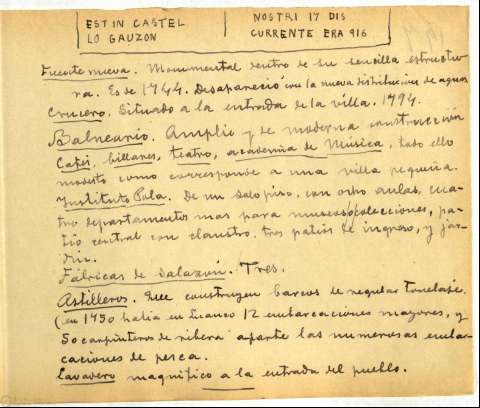 EST IN CASTEL
LO GAUZON
NOSTRI 17 DIS
CURRENTE ERA 916
Fuente nueva. Monumental dentro de su sencilla estructu-
ra. Es de 1744. Desapareció con la nueva distribución de aguas
Crucero. Situado a la entrada de la villa. 1794.
Balneario. Amplio y de moderna construcción
Cafés, billares, teatro, academia de Música, todo ello
modesto como corresponde a una villa pequeña.
Instituto Pola. De un solo piso, con ocho aulas, cua-
tro departamentos mas para museos o colecciones, pa-
tio central con claustro, tres patios de ingreso, y jar-
din.
Fábricas de salazón. Tres.
Astilleros. Que construyen barcos de regular tonelaje.
(en 1750 había en Luanco 12 embarcaciones mayores, y
50 carpinteros de ribera aparte las numerosas embar-
caciones de pesca.
Lavadero magnífico a la entrada del pueblo.